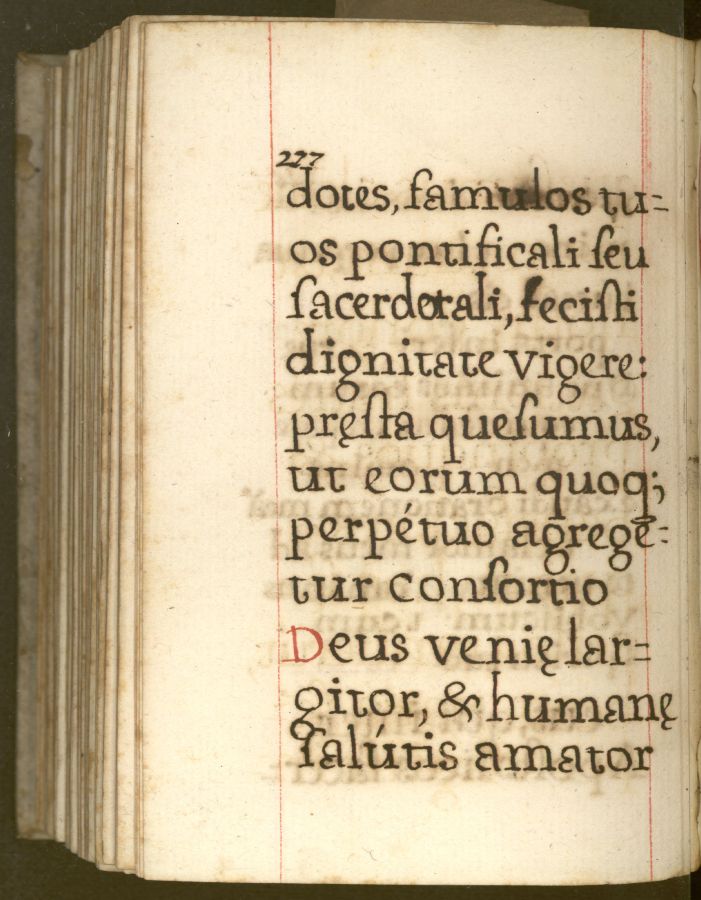 227
dotes, famulos tu=
os pontificali ſeu
ſacerdotali, feciſti
dignitate vigere:
pręſta queſumus,
ut eorum quoq;,
perpétuo agrege=
tur conſortio
Deus venię lar=
gitor, & humanę
ſalútis amator